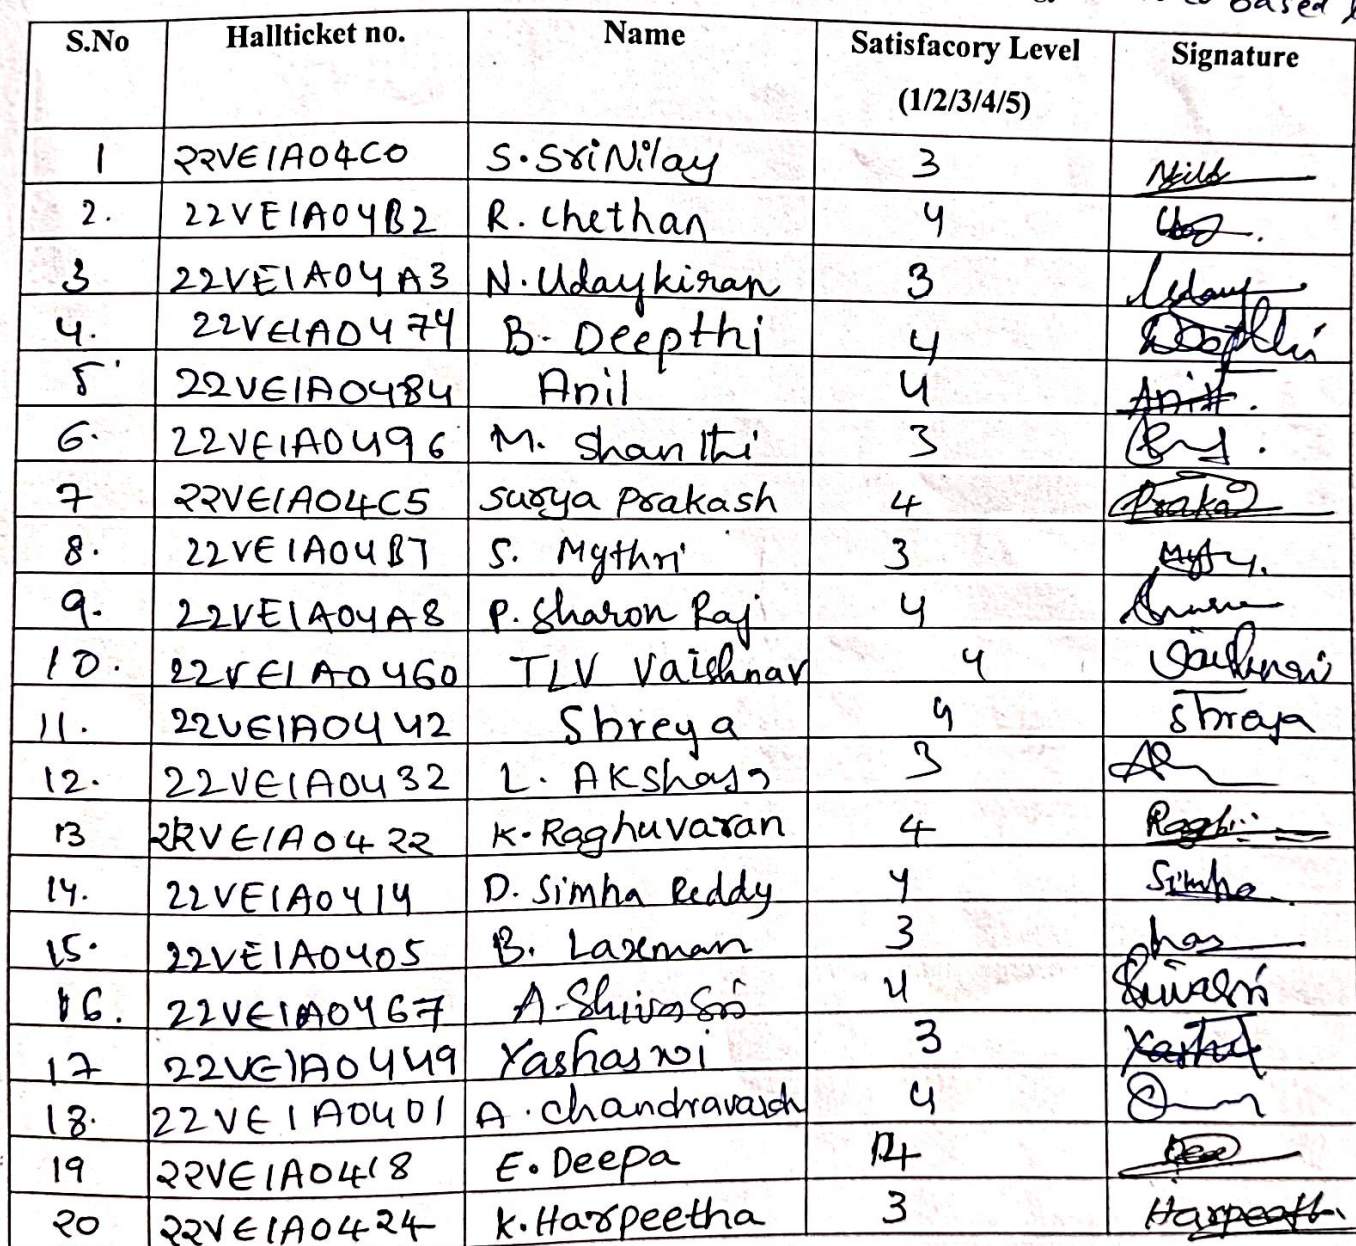 Based
S.No Hallticket no. Name Satisfacory Level (1/2/3/4/5) Signature
1 22VE1A04C0 S.SriNilay 3
2. 22VE1A04B2 R. Chethan 4
3 22VE1A04A3 N.Udaykiran 3 Uday
4. 22VE1A0474 B. Deepthi 4 Deepthi
5 22VE1A0484 Anil 4 Anil.
6. 22VE1A0496 M. Shanthi 3
7 22VE1A04C5 Surya Prakash 4 Prakash
8. 22VE1A04B7 S. Mythri 3
9. 22VE1A04A8 P. Sharon Raj 4
10. 22VE1A0460 TLV Vaishnavi 4 Vaishnavi
11. 22VE1A0442 Shreya 4 Shreya
12. 22VE1A0432 L. Akshaya 3
13 22VE1A0422 K. Raghuvaran 4
14. 22VE1A0414 D. Simha Reddy 4 Simha
15. 22VE1A0405 B. Laxman 3
16. 22VE1A0467 A. Shivasri 4 Shivasri
17 22VE1A0449 Yashaswi 3
18. 22VE1A0401 A. Chandravarsh 4
19 22VE1A0418 E. Deepa 4
20 22VE1A0424 K. Harpeetha 3